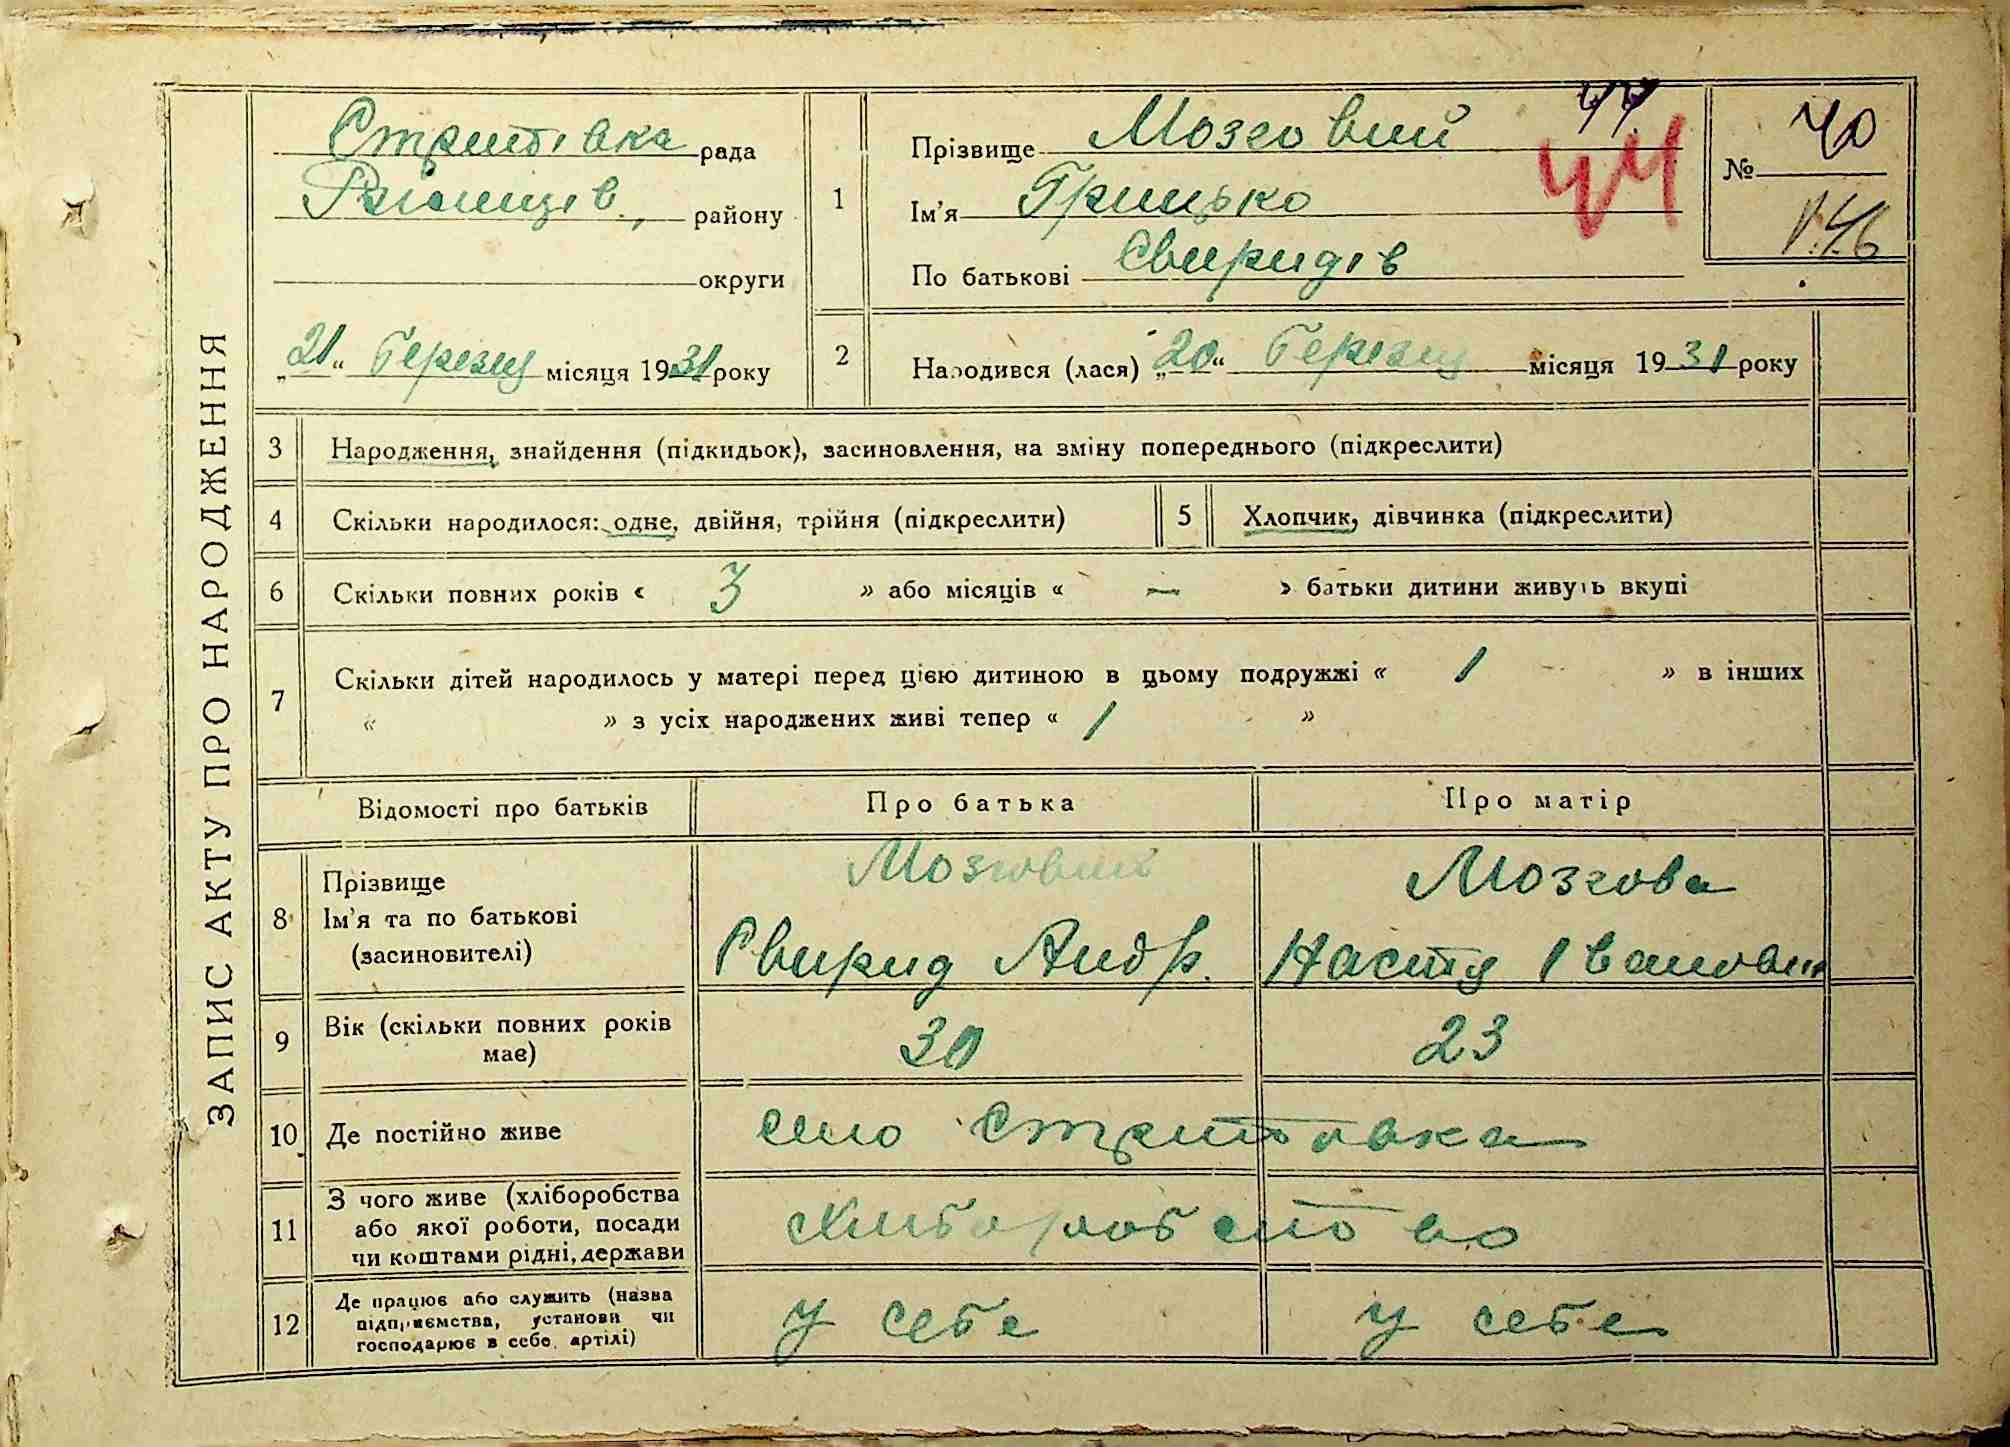 ЗАПИС АКТУ ПРО НАРОДЖЕННЯ
Стритівка рада
району
округи
„21“ Березня місяця 1931 року
1
Прізвище Мозговий
Ім'я Грицько
По батькові Свиридів
44
44
№ 40
2
Народився (лася) „20“ Березня місяця 1931 року
3 Народження, знайдення (підкидьок), засиновлення, на зміну попереднього (підкреслити)
4 Скільки народилося: одне, двійня, трійня (підкреслити)
5 Хлопчик, дівчинка (підкреслити)
6 Скільки повних років « 3 » або місяців « — » батьки дитини живуть вкупі
7 Скільки дітей народилось у матері перед цією дитиною в цьому подружжі « 1 » в інших
« » з усіх народжених живі тепер « 1 »
Відомості про батьків Про батька Про матір
8 Прізвище
Ім'я та по батькові
(засиновителі)
Мозговий
Свирид Андр.
Мозгова
Настя Івановна
9 Вік (скільки повних років
має)
30 23
10 Де постійно живе
село Стритовка
11 З чого живе (хліборобства
або якої роботи, посади
чи коштами рідні, держави
Хліборобство
12 Де працює або служить (назва
підприємства, установи чи
господарює в себе, артілі)
у себе у себе